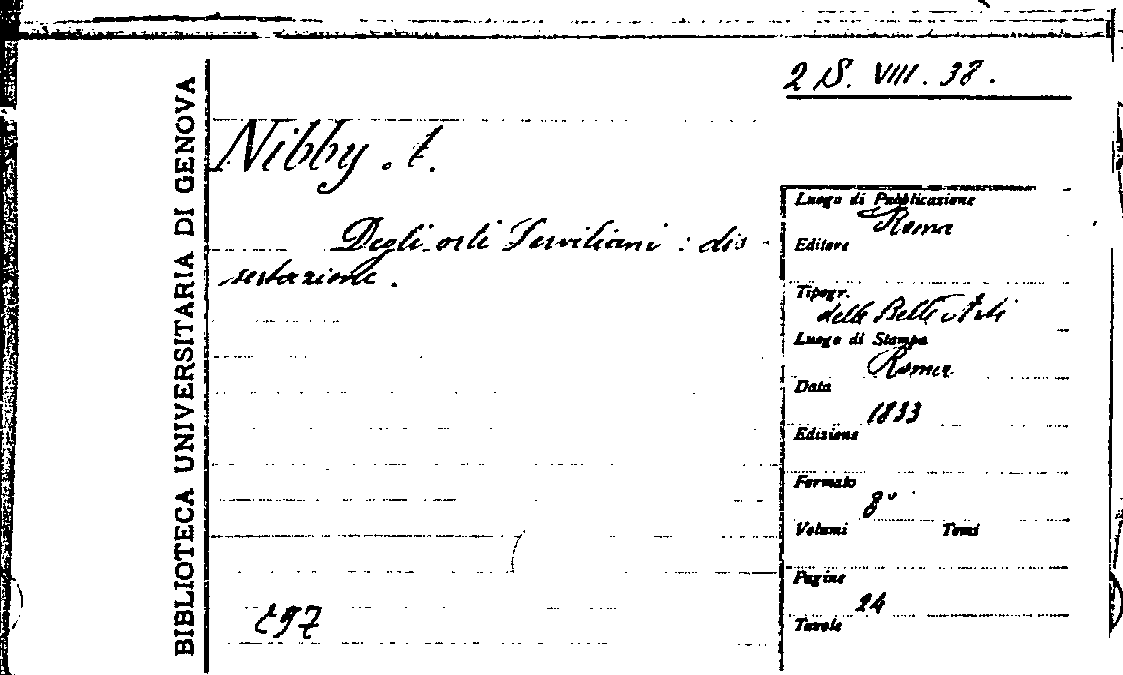 BIBLIOTECA UNIVERSITARIA DI GENOVA
2 S. VIII. 38.
Nibby. A.
Degli orti Serviliani : dis
sertazione.
Luogo di Pubblicazione
Roma
Editore
Tipogr.
delle Belle Arti
Luogo di Stampa
Roma
Data
1833
Edizione
Formato
8°
Volumi Tomi
Pagine
24
Tavole